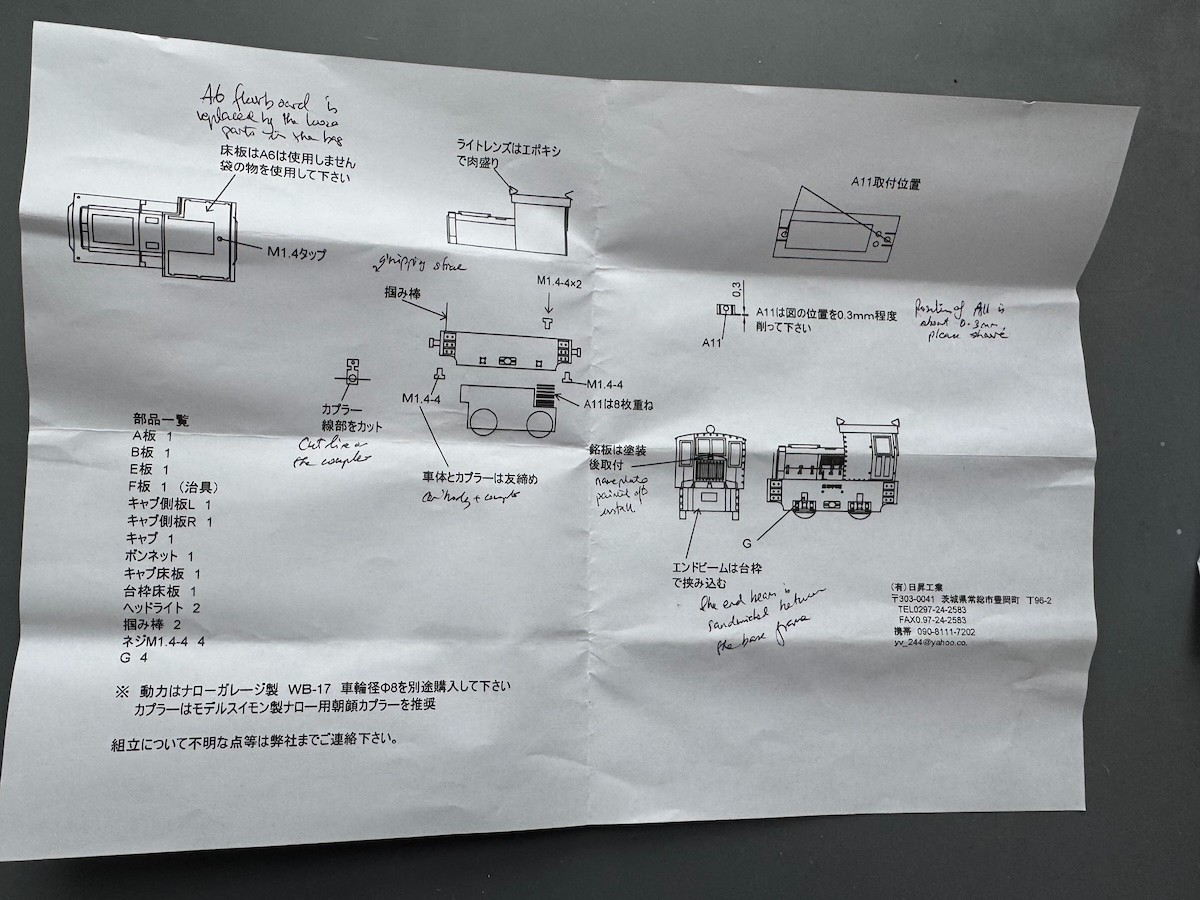 A6 floorboard is
replaced by the loose
parts in the bag
床板はA6は使用しません
袋の物を使用して下さい
M1.4タップ
ライトレンズはエポキシ
で肉盛り
gripping
掴み棒
M1.4-4×2
M1.4-4
M1.4-4
A11は8枚重ね
カプラー
線部をカット
Cut line
the coupler
車体とカプラーは友締め
部品一覧
A板 1
B板 1
E板 1
F板 1 (治具)
キャブ側板L 1
キャブ側板R 1
キャブ 1
ボンネット 1
キャブ床板 1
台枠床板 1
ヘッドライト 2
掴み棒 2
ネジM1.4-4 4
G 4
※ 動力はナローガレージ製 WB-17 車輪径Φ8を別途購入して下さい
カプラーはモデルスイモン製ナロー用朝顔カプラーを推奨
組立について不明な点等は弊社までご連絡下さい。
A11取付位置
0.3
A11
A11は図の位置を0.3mm程度
削って下さい
Position of A11 is
about 0.3mm,
please shave
銘板は塗装
後取付
nameplate
install
G
エンドビームは台枠
で挟み込む
the end beam is
sandwiched between
the base frame
(有)日昇工業
〒303-0041 茨城県常総市豊岡町 丁96-2
TEL0297-24-2583
FAX0.97-24-2583
携帯 090-8111-7202
yv_244@yahoo.co.